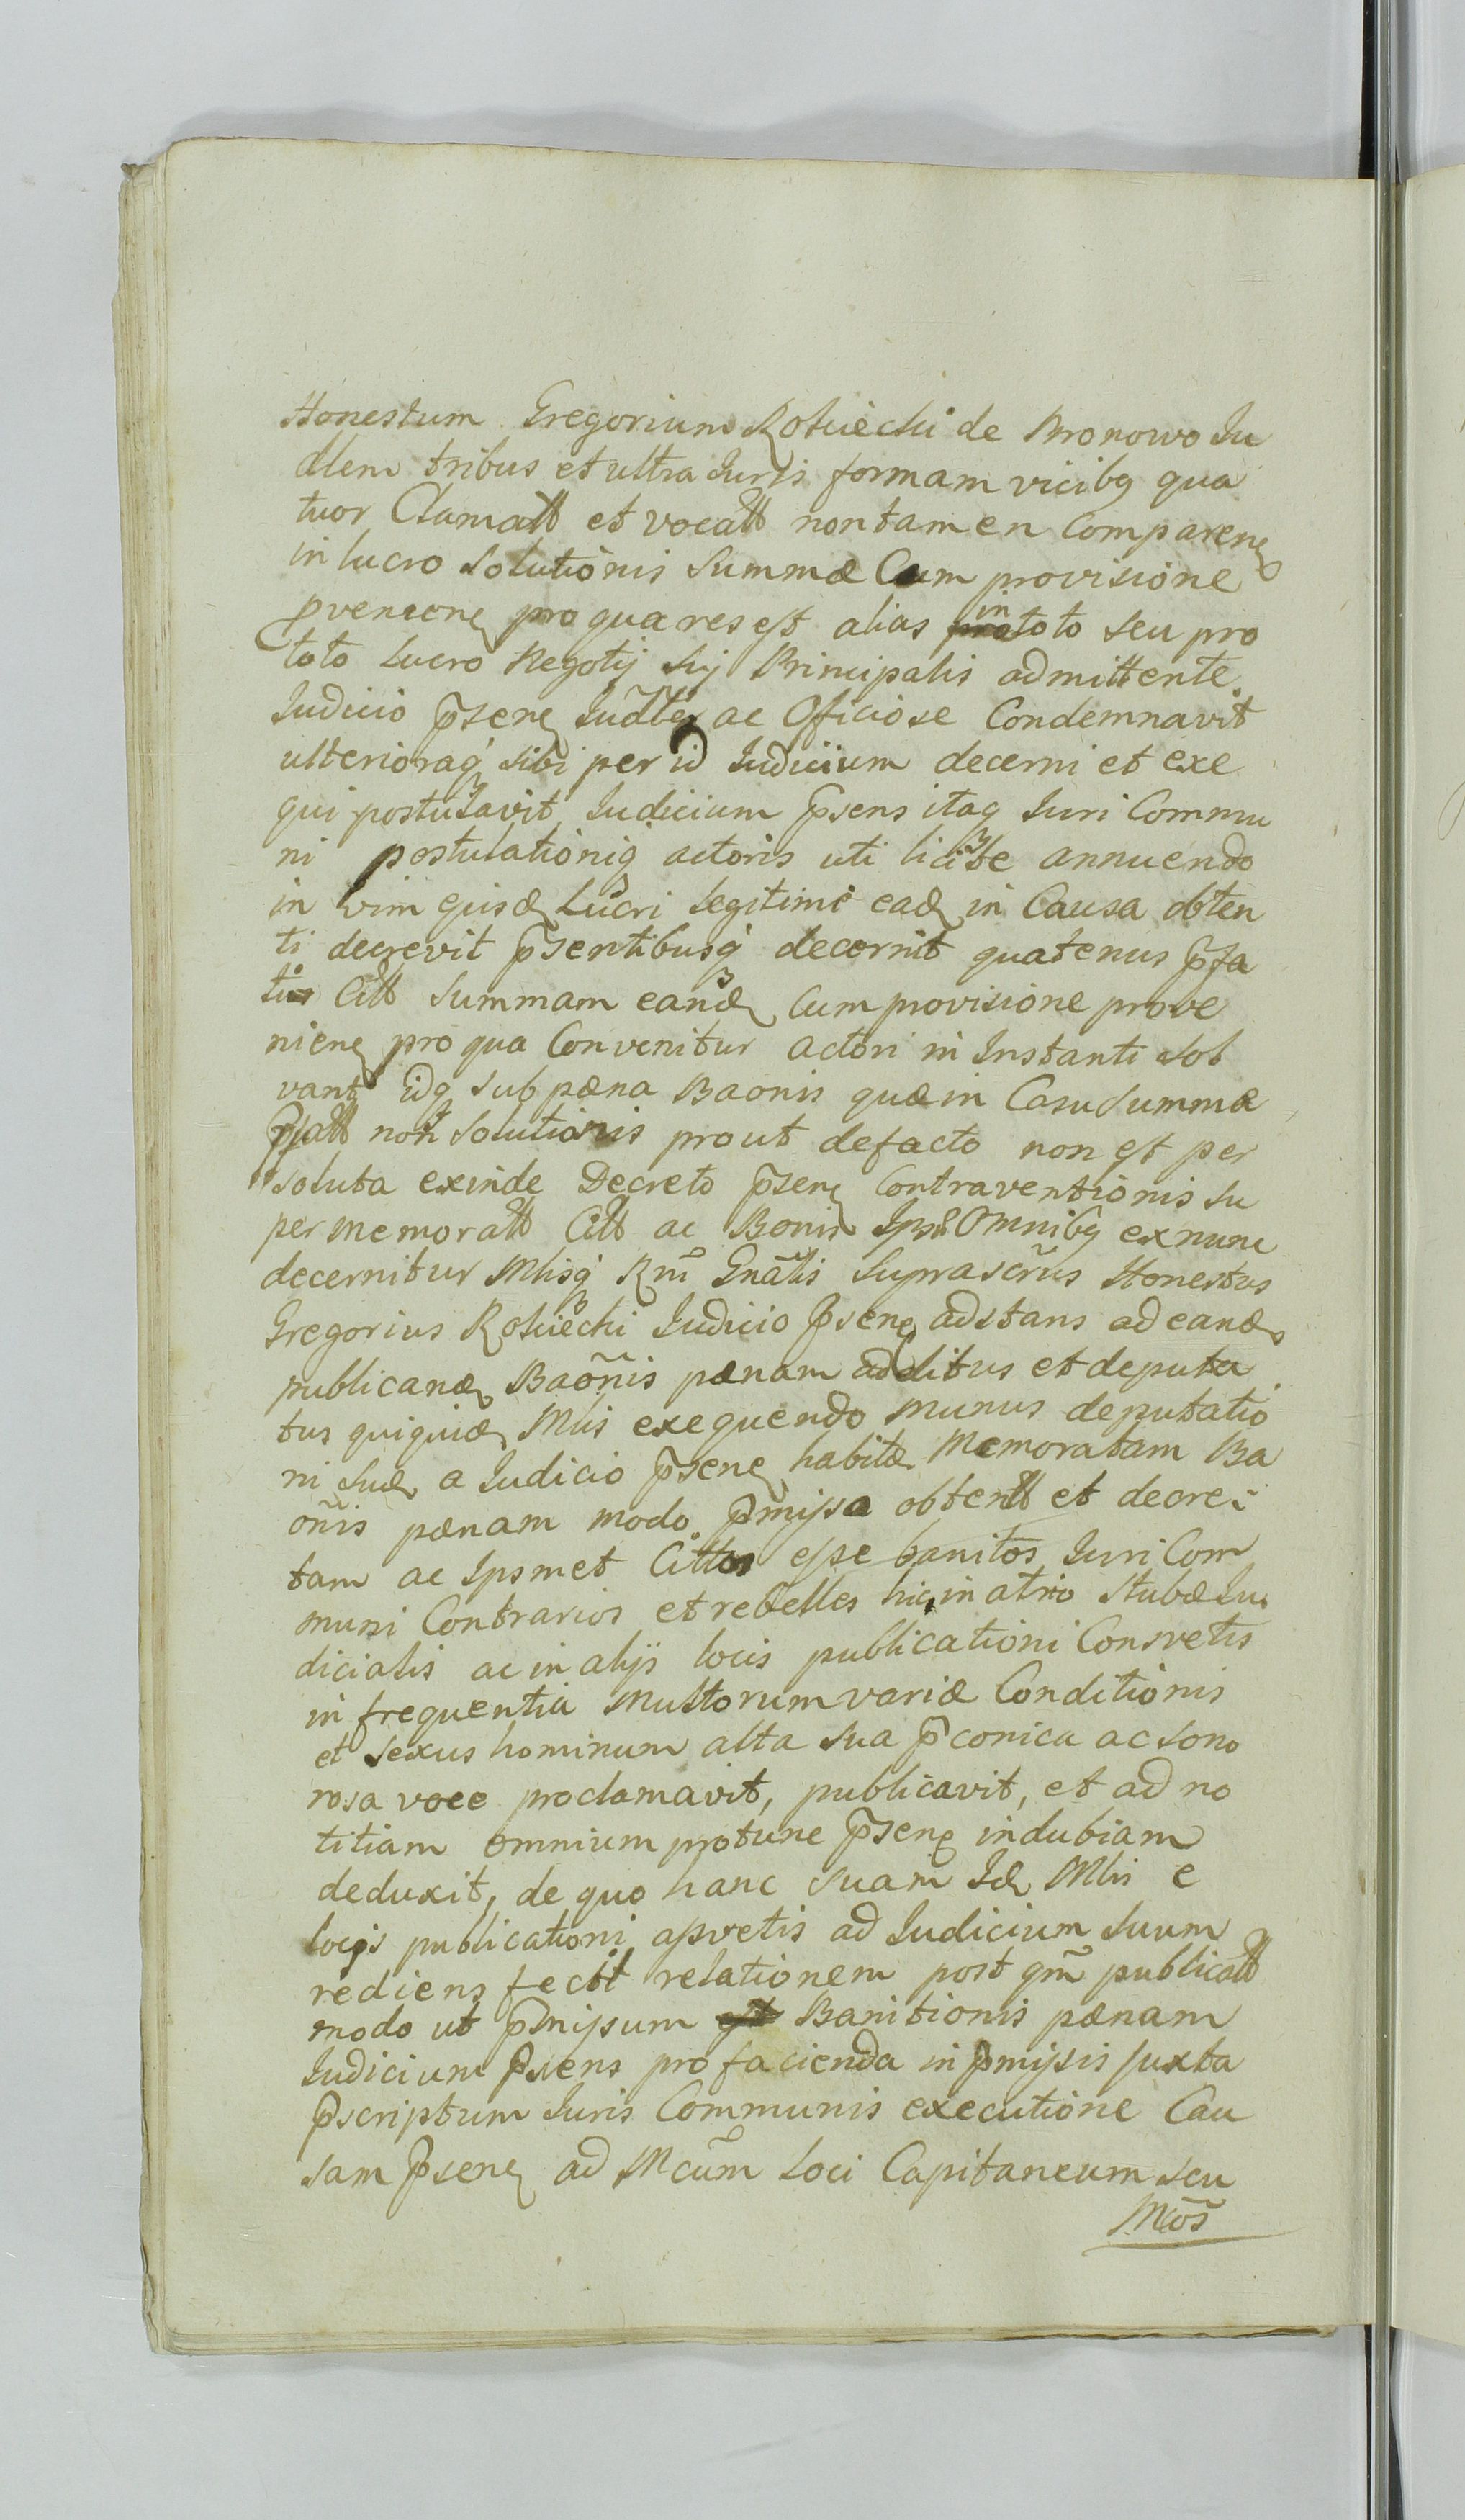 Honestum Gregorium Rokicki de Bronowo Ju
dlem tribus et ultra Juris formam vicibq qua
tuor Clamatt et vocatt non tamen Comparenꝭ
in lucro Solutionis Summæ Cum provisione
pvenienꝭ pro qua res est alias in toto seu pro
toto lucro Negotij sŭj Principalis admittente
Judicio p̃senꝭ Judt̃er ac Officiose Condemnavit
ulterioraq sibi per id Judicium decerni et exe
qui postulavit Judicium p̃sens itaq Juri Commu
ni postulationiq actoris uti licite annuendo
in vim ejusd Lucri legitime ead in Causa obten
ti decrevit p̃sentibusq decernit quatenus p̃fa
tus Citt Summam eand Cum provisione prove
nienꝭ pro qua Convenitur actori in Instanti Sol
vant idq sub pæna Baonis quæ in Casu Summæ
p̃fatt non Solutionis prout de facto non est per
soluta exinde Decreto p̃senꝭ Contraventionis Su
per memoratt Citt ac Bonis Ipsr Omnibq ex nunc
decernitur Mlisq Rni Gnãlis Suprascrũs Honestus
Gregorius Rokicki Judicio p̃senꝭ adstans ad eand
publicand Baõnis pænam additus et deputa
tus quiquid Mlis exequendo munus deputatio
ni Suæ a Judicio p̃senꝭ habitæ Memoratam Ba
oñis pænam modo p̃missa obtentt et decre
tam ac Ipsmet Cittos esse banitos Juri Com
muni Contrarios et rebelles hic in atrio Stubæ Ju
dicialis ac in alijs locis publicationi Consvetis
in frequentia Multorum variæ Conditionis
et sexus hominum alta sua p̃conica ac sono
rosa voce proclamavit, publicavit, et ad no
titiam omnium protunc p̃senꝭ indubiam
deduxit, de quo hanc suam Id Mlis e
locis publicationi assvetis ad Judicium Suum
rediens fecit relationem post qm̃ publicatt
modo ut p̃missum est Banitionis pænam
Judicium p̃sens pro facienda in p̃missis juxta
p̃scriptum Juris Communis executione Cau
sam p̃senꝭ ad Mcum̃ Loci Capitaneum seu
Mcos̃